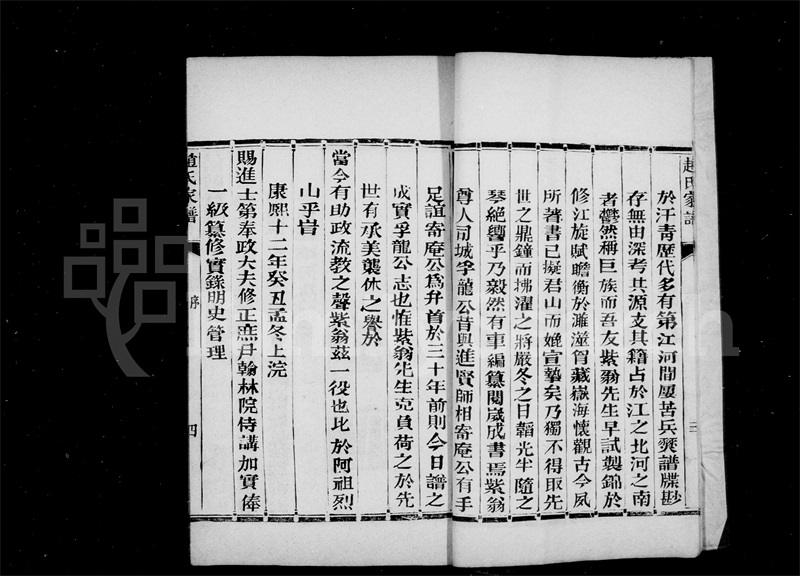 趙氏家譜
三
於汗青歷代多有第江河間屢苦兵燹譜牒尠
存無由深考其源支其籍占於江之北河之南
者鬱然稱巨族而吾友紫翁先生早試製錦於
修江旋賦瞻衡於濰瀣胷藏嶽海懷觀古今夙
所著書已擬君山而媲宣摯矣乃獨不得取先
世之鼎鐘而拂濯之將嚴冬之日韜光牛隨之
琴絕響乎乃毅然有事編纂閱歲成書焉紫翁
尊人司城孚龍公昔與進賢師相寄庵公有手
足誼寄庵公爲弁首於三十年前則今日譜之
成實孚龍公志也惟紫翁先生克負荷之於先
世有承美襲休之譽於
當今有助政流教之聲紫翁茲一役也比於阿祖烈
山乎旹
康熙十二年癸丑孟冬上浣
賜進士第奉政大夫修正庶尹翰林院侍講加實俸
一級纂修實錄明史管理
趙氏家譜
序
四